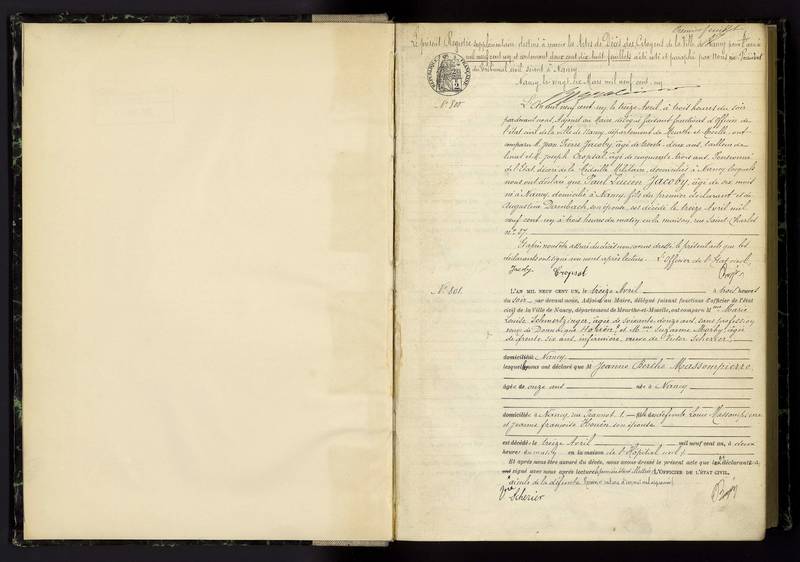 Premier feuillet
Le présent Registre supplémentaire destiné à inscrire les Actes de Décès des Citoyens de la Ville de Nancy pour l'année
mil neuf cent un et contenant deux cent dix huit feuillets a été coté et paraphé par nous Président
du Tribunal civil séant à Nancy.
Nancy le vingt six Mars mil neuf cent un
RÉPUBLIQUE FRANÇAISE
N° 800
L'An mil neuf cent un, le treize Avril, à trois heures du soir
pardevant nous, Adjoint au Maire, délégué faisant fonctions d'Officier de
l'état civil de la ville de Nancy, département de Meurthe et Moselle, ont
comparu M. Jean Pierre Jacoby, âgé de trente deux ans, tailleur de
limes et M. Joseph Cropsal, âgé de cinquante trois ans, Pensionné
de l'Etat, décoré de la Médaille Militaire, domiciliés à Nancy lesquels
nous ont déclaré que Paul Lucien Jacoby, âgé de six mois
né à Nancy, domicilié à Nancy, fils du premier déclarant et de
Augustine Dambach, son épouse, est décédé le treize Avril mil
neuf cent un, à trois heures du matin, en la maison, rue Saint Charles
n° 37.
Et après nous être assuré du décès nous avons dressé le présent acte que les
déclarants ont signé avec nous après lecture. L'Officier de l'Etat civil,
Jacoby Cropsal
N° 801.
L'AN MIL NEUF CENT UN, le treize Avril à trois heures
du soir par devant nous, Adjoint au Maire, délégué faisant fonctions d'officier de l'état
civil de la Ville de Nancy, département de Meurthe-et-Moselle, ont comparu Mme Marie
Louise Schmertzinger, âgée de soixante douze ans, sans profession
veuve de Dominique Houën, et Mme Suzanne Marby, âgée
de trente six ans, infirmière, veuve de Victor Scherier,
domiciliées à Nancy
lesquelles nous ont déclaré que M Jeanne Berthe Massompierre,
âgée de onze ans née à Nancy
domiciliée à Nancy, rue Jeannot 1. fille de défunts Louis Massompierre
et Jeanne françoise Houën son épouse
est décédée le treize Avril mil neuf cent un, à deux
heures du matin en la maison de l'Hôpital civil
Et après nous être assuré du décès, nous avons dressé le présent acte que les déclarantes
ont signé avec nous après lecture L'OFFICIER DE L'ÉTAT CIVIL,
aïeule de la défunte
Vve Scherier